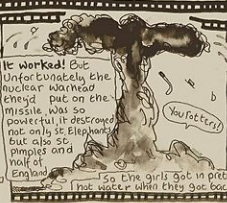 It worked! But
Unfortunately the
nuclear warhead
they'd put on the
missile was so
powerful, it destroyed
not only St. Elephants
but also St.
pimples and
half of
England
You rotters!
So the girls got in
hot water when they got bac